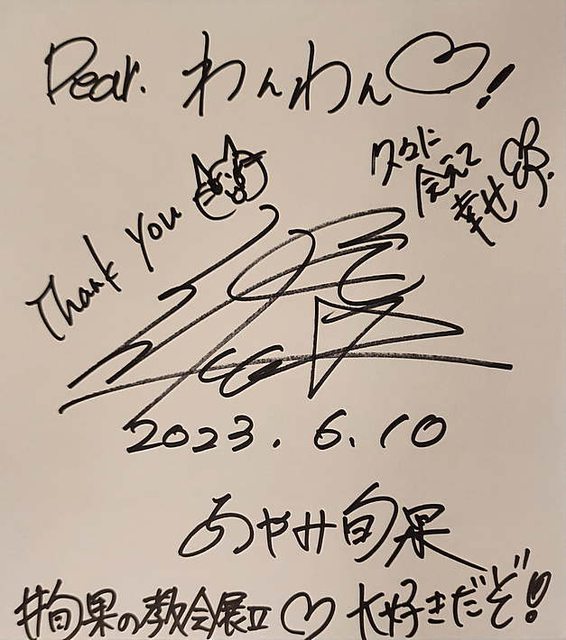 Dear. わんわん♡!
会えて
幸せ
Thank you
2023.6.10
あやみ旬果
#旬果の教会展II ♡ 大好きだぞ!